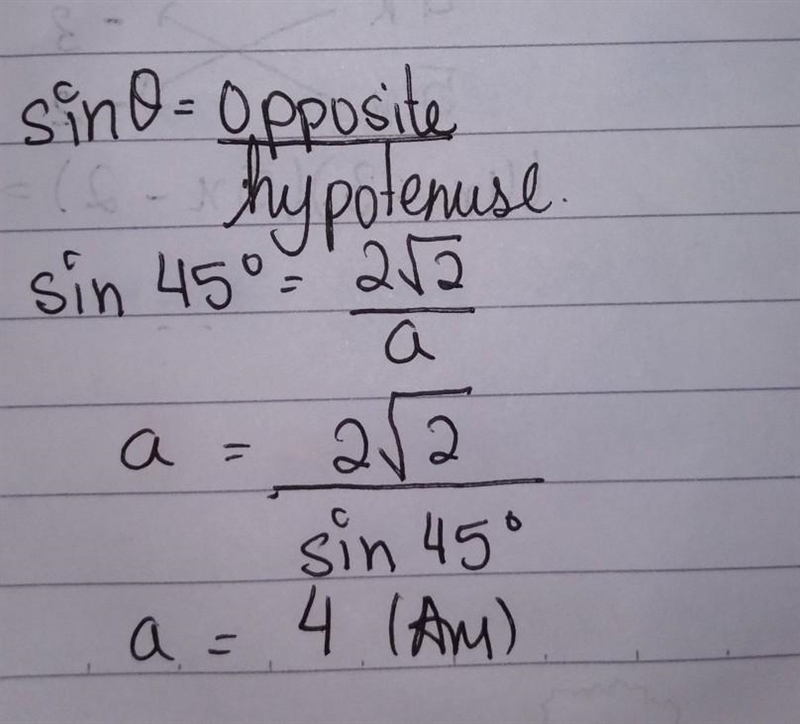 sinθ = opposite
hypotenuse.
sin 45° = 2√2
a
a = 2√2
sin 45°
a = 4 (Ans)